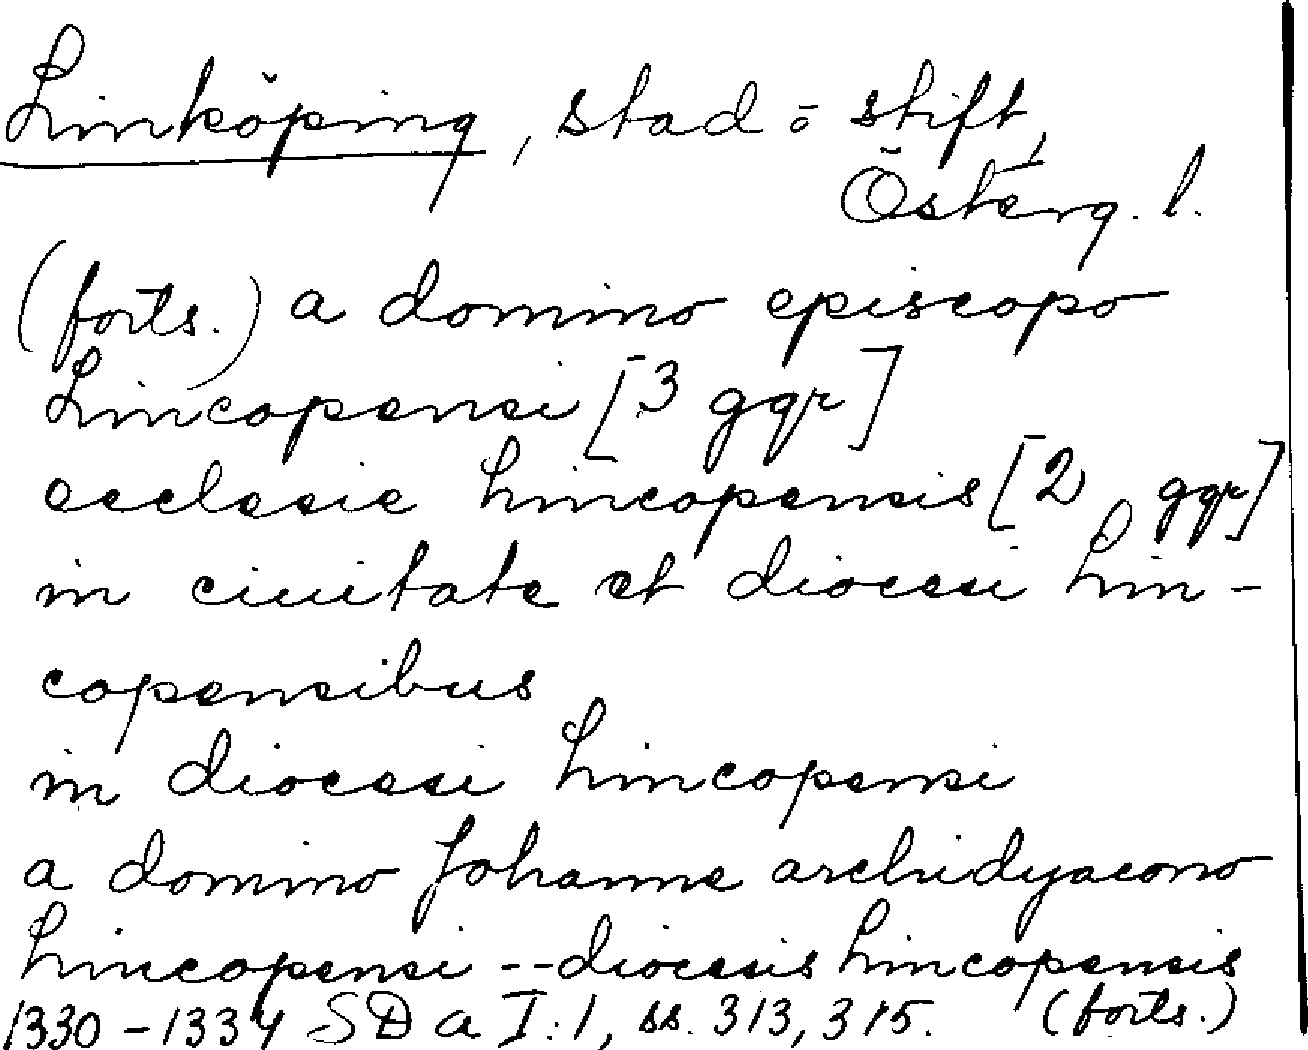 Linköping, stad o stift,
Österg. l.
(forts.) a domino episcopo
Lincopensi [3 ggr]
ecclesie Lincopensis [2 ggr]
in ciuitate et diocesi Lin-
copensibus
in diocesi Lincopensi
a domino Johanne archidyacono
Lincopensi -- diocesis Lincopensis
1330-1334 SD a I:1, ss. 313, 315. (forts.)